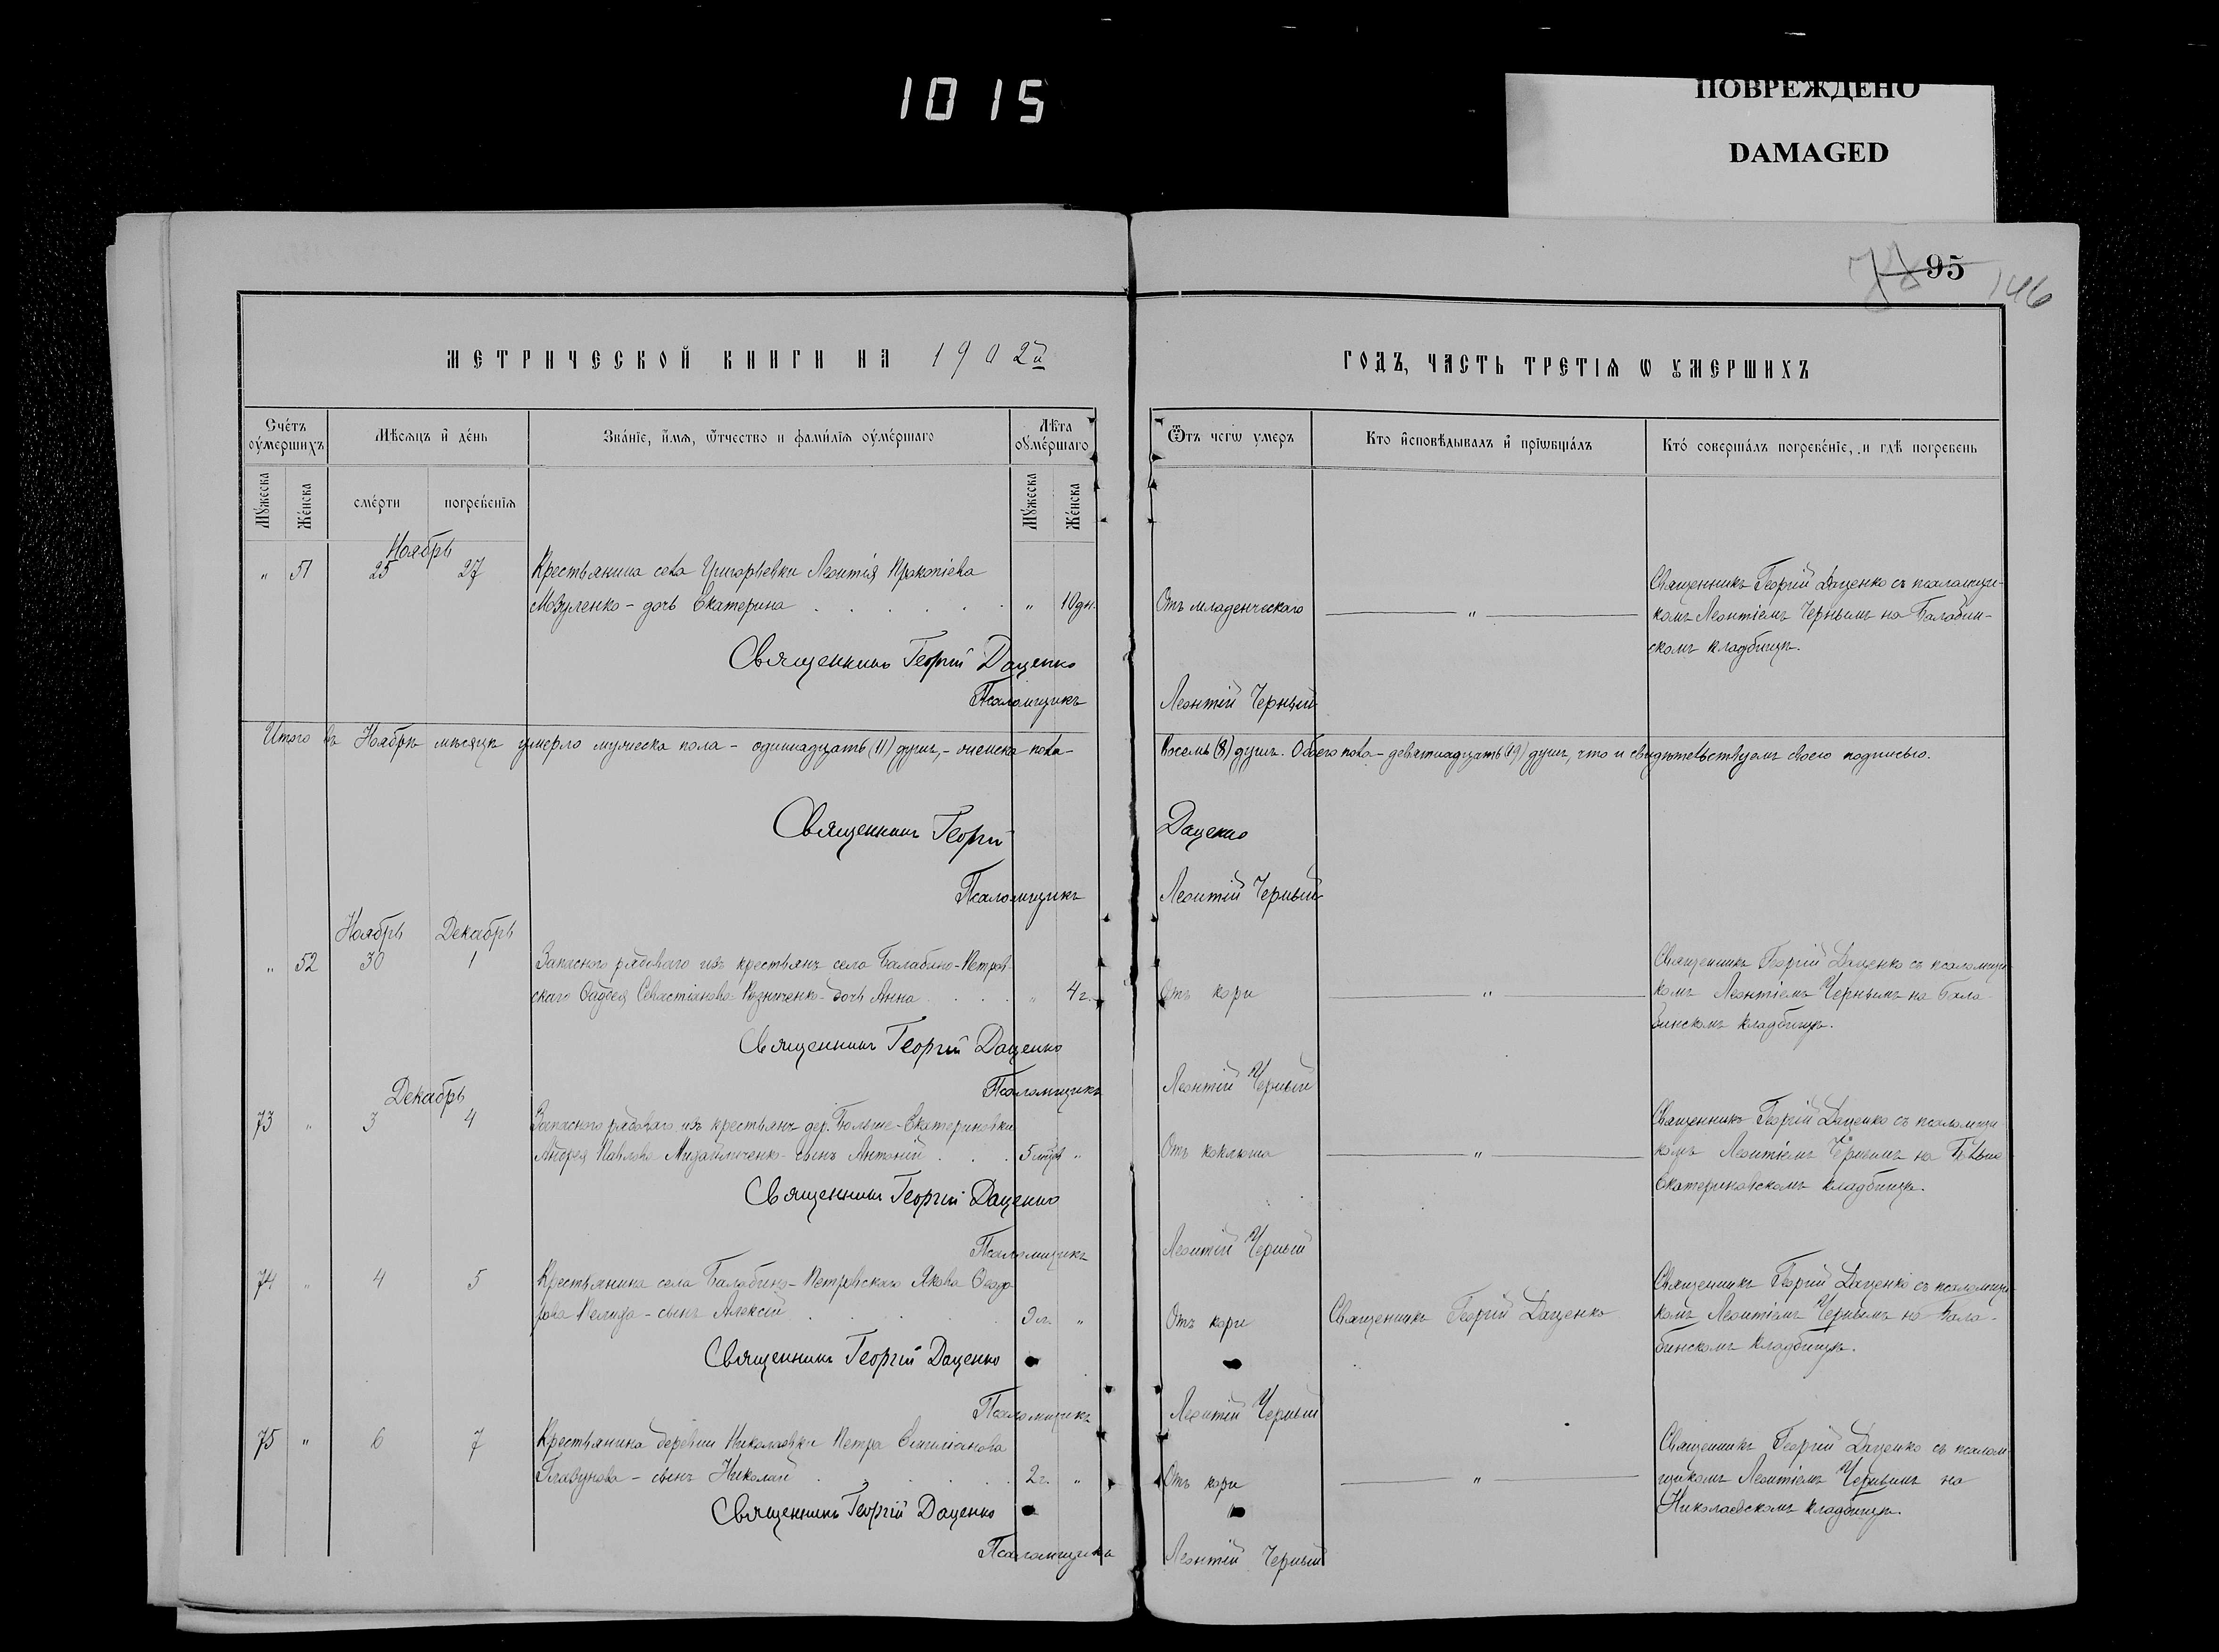 1015
ПОВРЕЖДЕНО
DAMAGED
95
146
МЕТРИЧЕСКОЙ КНИГИ НА 1902й
ГОДЪ, ЧАСТЬ ТРЕТІѦ Ѡ УМЕРШИХЪ
Счетъ умершихъ
Мѣсяцъ и день
Званіе, имя, отчество и фамилія умершаго
Лѣта умершаго
Отъ чего умеръ
Кто исповѣдывалъ и пріобщалъ
Кто совершалъ погребеніе, и гдѣ погребенъ
Мужеска
Женска
смерти
погребенія
Мужеска
Женска
Ноябрь
" 51 25 27 Крестьянина села Григорьевки Леонтія Прокопіева
Мозуленко - дочь Екатерина " 10 дн.
Отъ младенческаго
"
Священникъ Георгій Даценко съ псаломщи-
комъ Леонтіемъ Чернымъ на Балабин-
скомъ кладбищѣ.
Священникъ Георгій Даценко
Псаломщикъ Леонтій Черный
Итого въ Ноябрѣ мѣсяцѣ умерло мужеска пола - одиннадцать (11) душъ, - женска пола - восемь (8) душъ. Обоего пола - девятнадцать (19) душъ, что и свидѣтельствуемъ своею подписью.
Священникъ Георгій Даценко
Псаломщикъ Леонтій Черный
Ноябрь Декабрь
" 52 30 1 Запасного рядоваго изъ крестьянъ села Балабино-Петров-
скаго Фаддея Севастіанова - дочь Анна " 4 г.
Отъ кори
"
Священникъ Георгій Даценко съ псаломщи-
комъ Леонтіемъ Чернымъ на Бала-
бинскомъ кладбищѣ.
Священникъ Георгій Даценко
Псаломщикъ Леонтій Черный
Декабрь
73 " 3 4 Запасного рядоваго изъ крестьянъ дер. Больше-Екатериновки
Андрея Павлова Михайличенко - сынъ Антоній 5 "
Отъ коклюша
"
Священникъ Георгій Даценко съ псаломщи-
комъ Леонтіемъ Чернымъ на Больше-
Екатериновскомъ кладбищѣ.
Священникъ Георгій Даценко
Псаломщикъ Леонтій Черный
74 " 4 5 Крестьянина села Балабино-Петровскаго Якова Ѳеодо-
рова - сынъ Алексій "
Отъ кори
Священникъ Георгій Даценко
Священникъ Георгій Даценко съ псаломщи-
комъ Леонтіемъ Чернымъ на Бала-
бинскомъ кладбищѣ.
Священникъ Георгій Даценко
Псаломщикъ Леонтій Черный
75 " 6 7 Крестьянина деревни Николаевки Петра Емиліанова
- сынъ Николай 2 г. "
Отъ кори
"
Священникъ Георгій Даценко съ псалом-
щикомъ Леонтіемъ Чернымъ на
Николаевскомъ кладбищѣ.
Священникъ Георгій Даценко
Псаломщикъ Леонтій Черный